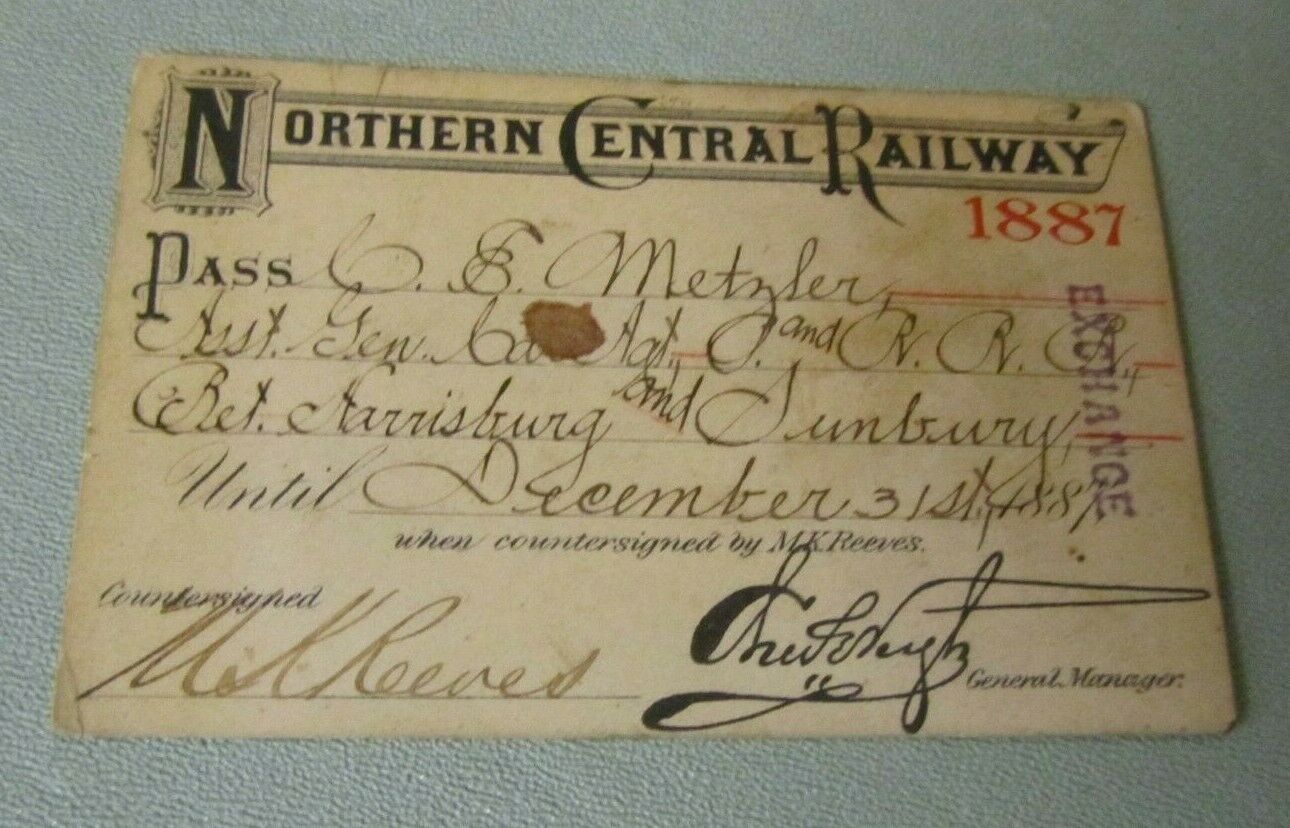 NORTHERN CENTRAL RAILWAY
1887
PASS C. E. Metzler,
Asst. Gen. Agt. O. and R. R. Co.,
Bet. Harrisburg and Sunbury,
Until December 31st, 1887
when countersigned by M.K.Reeves.
EXCHANGE
Countersigned
M K Reeves
General Manager.